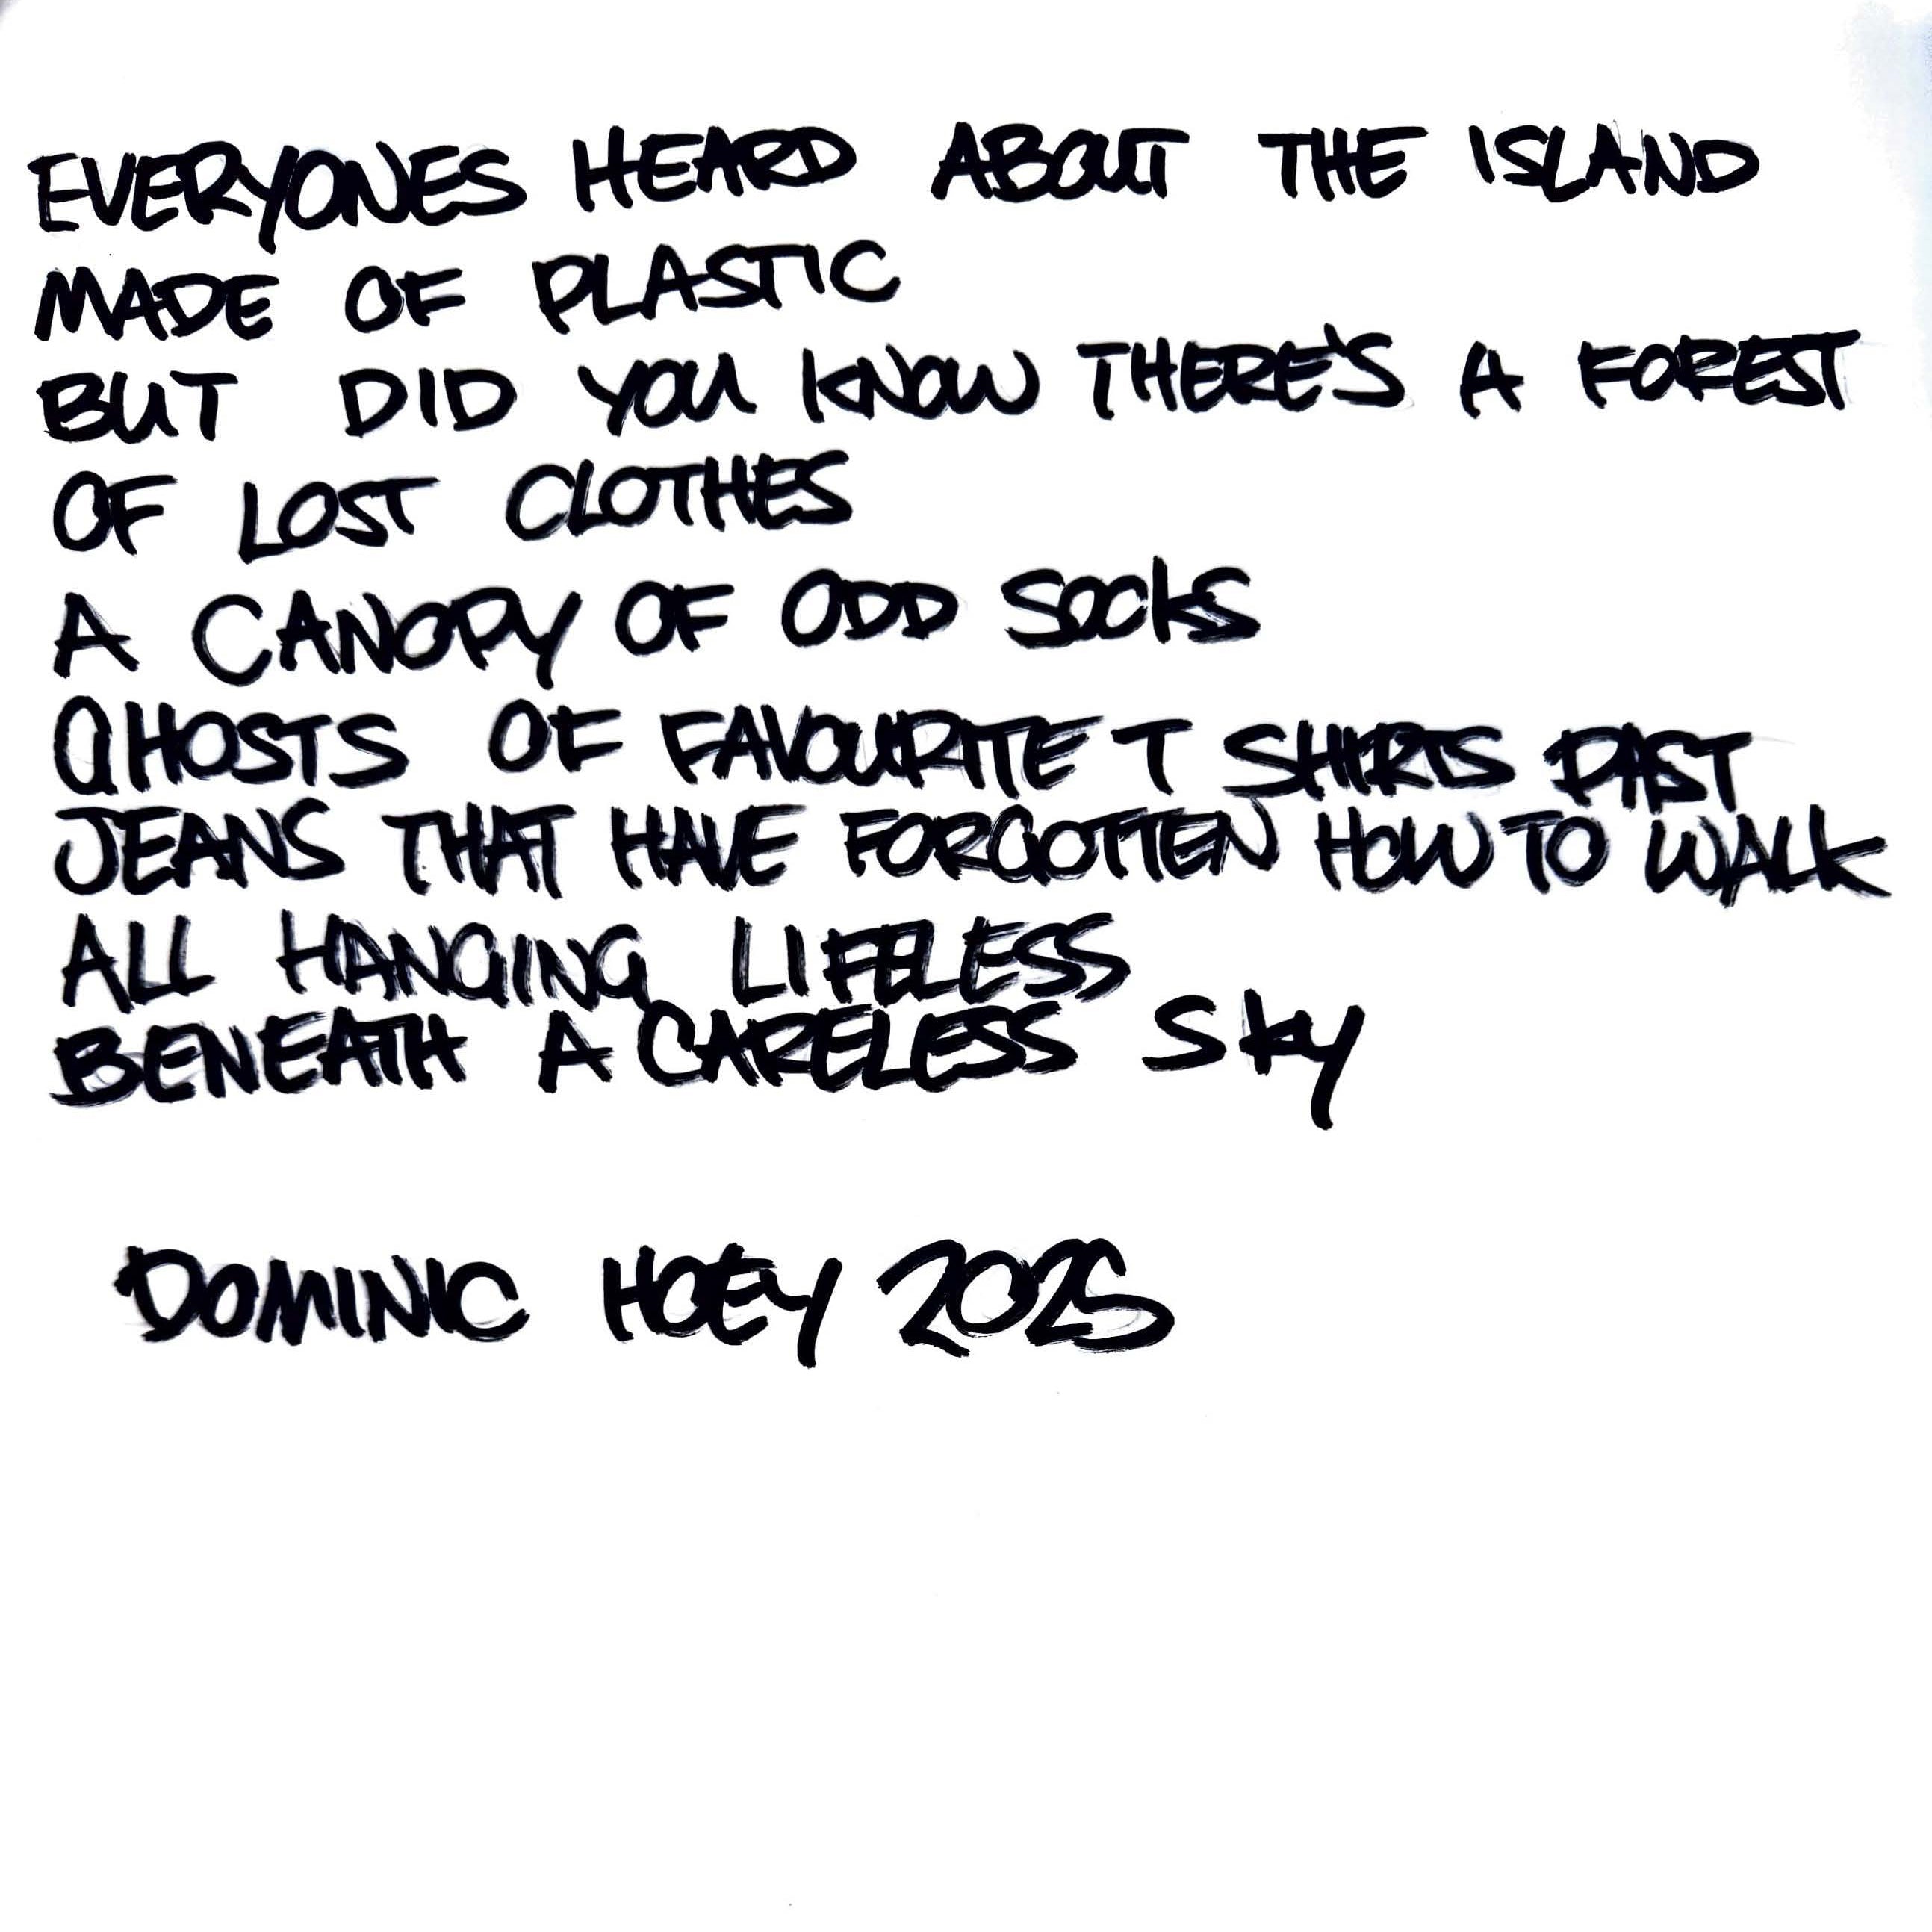 EVERYONES HEARD ABOUT THE ISLAND
MADE OF PLASTIC
BUT DID YOU KNOW THERE'S A FOREST
OF LOST CLOTHES
A CANOPY OF ODD SOCKS
GHOSTS OF FAVOURITE T SHIRTS PAST
JEANS THAT HAVE FORGOTTEN HOW TO WALK
ALL HANGING LIFELESS
BENEATH A CARELESS SKY
DOMINIC HOEY 2025